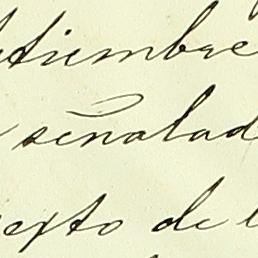 tiembre
señalad
exto de